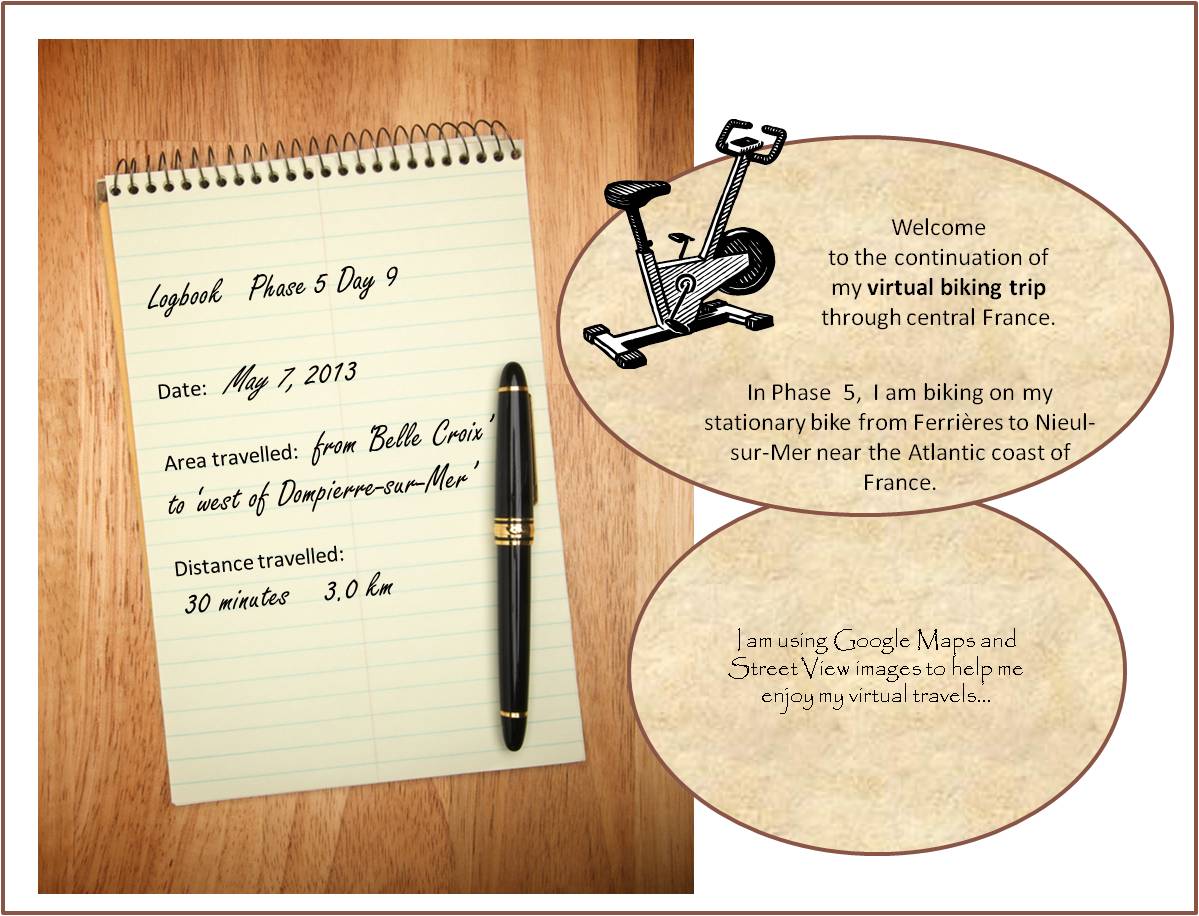 Logbook Phase 5 Day 9
Date: May 7, 2013
Area travelled: from 'Belle Croix'
to 'west of Dompierre-sur-Mer'
Distance travelled:
30 minutes 3.0 km
Welcome
to the continuation of
my virtual biking trip
through central France.
In Phase 5, I am biking on my
stationary bike from Ferrières to Nieul-
sur-Mer near the Atlantic coast of
France.
I am using Google Maps and
Street View images to help me
enjoy my virtual travels...